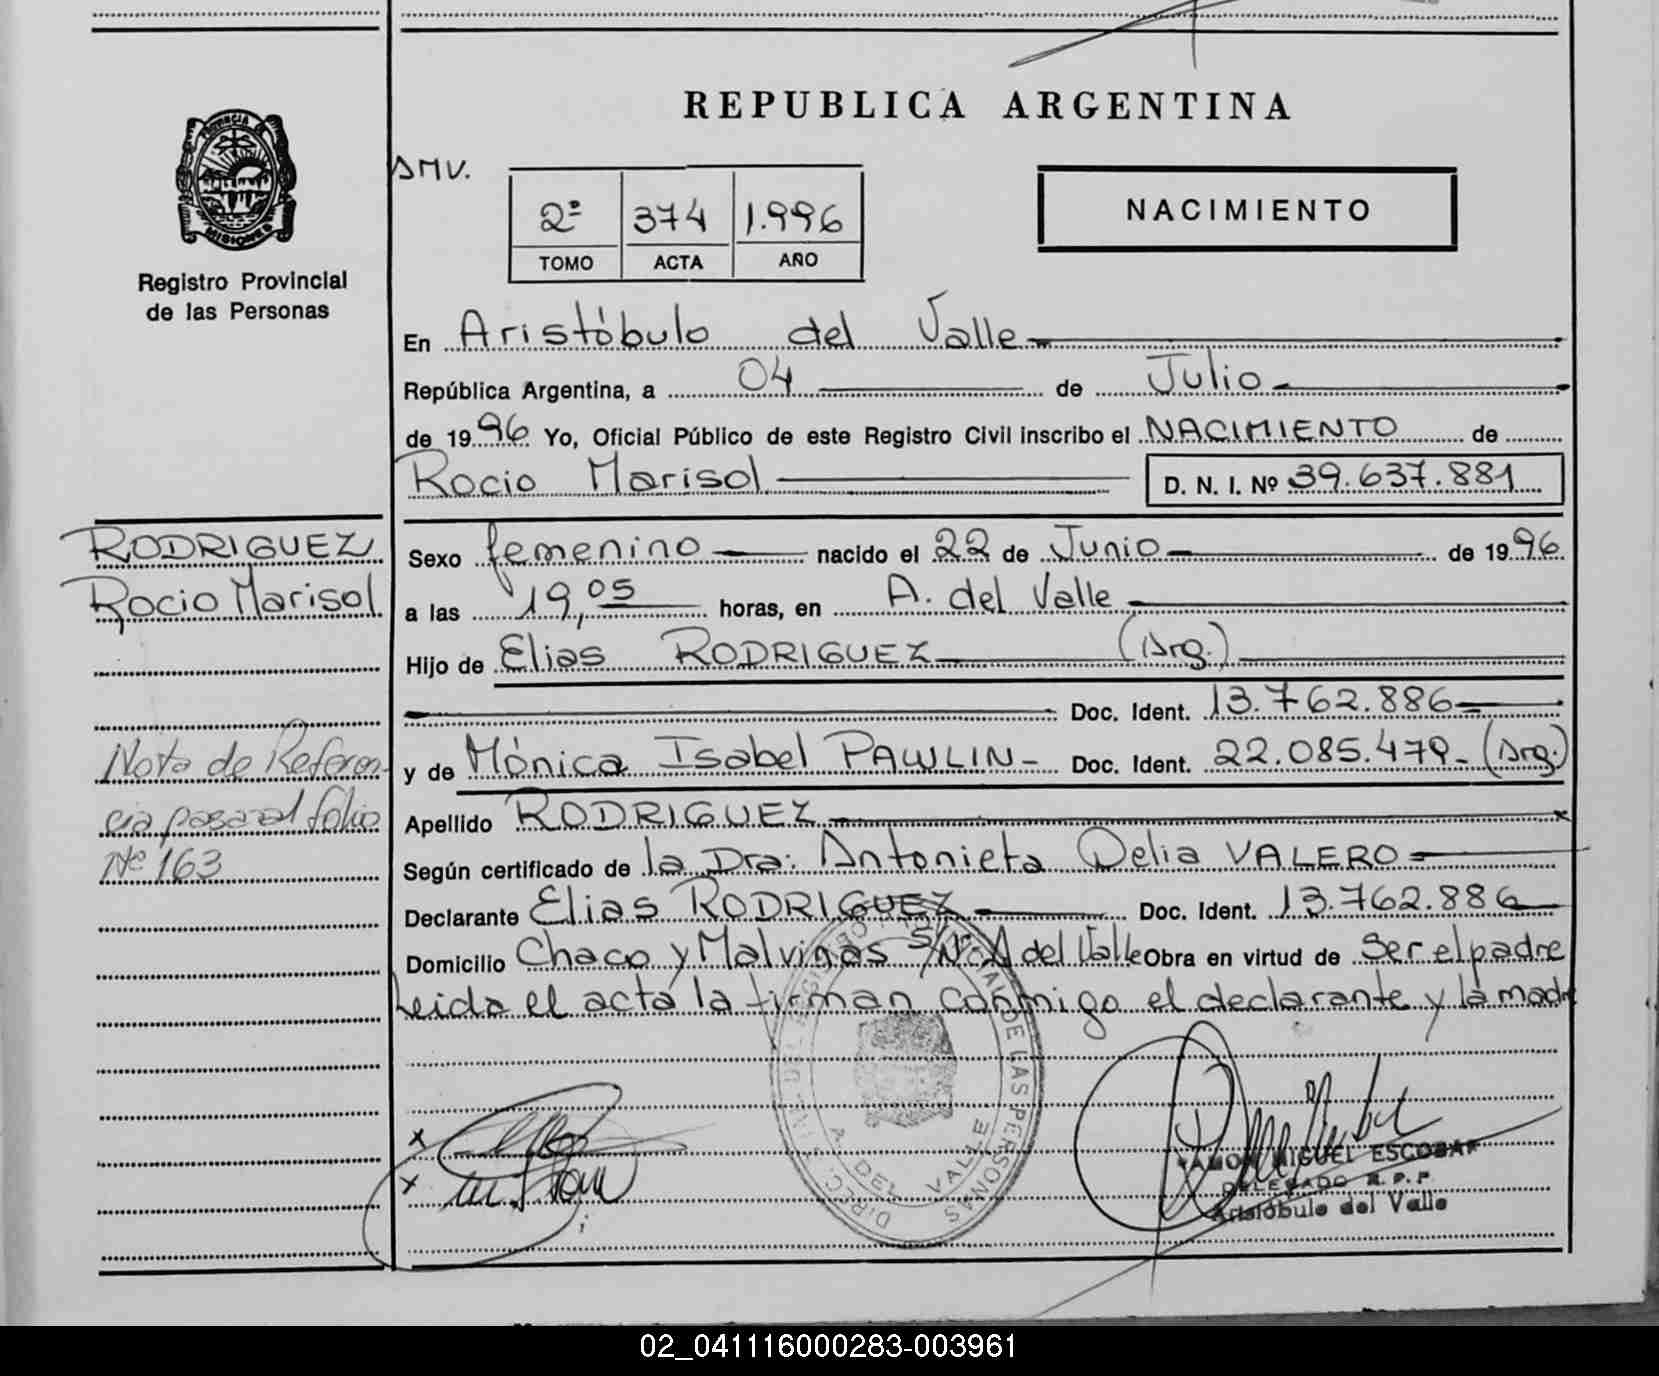 REPUBLICA ARGENTINA
PROVINCIA DE
MISIONES
Registro Provincial
de las Personas
AMV.
2º 374 1.996
TOMO ACTA AÑO
NACIMIENTO
En Aristóbulo del Valle
República Argentina, a 04 de Julio
de 1996 Yo, Oficial Público de este Registro Civil inscribo el NACIMIENTO de
Rocio Marisol D. N. I. Nº 39.637.881
RODRIGUEZ
Rocio Marisol
Sexo femenino nacido el 22 de Junio de 1996
a las 19,05 horas, en A. del Valle
Hijo de Elias RODRIGUEZ (Arg.)
Doc. Ident. 13.762.886
y de Mónica Isabel PAWLIN- Doc. Ident. 22.085.479- (Arg.)
Nota de Referen-
cia pasa al folio
Nº 163
Apellido RODRIGUEZ
Según certificado de la Dra: Antonieta Delia VALERO
Declarante Elias RODRIGUEZ Doc. Ident. 13.762.886
Domicilio Chaco y Malvinas S/Nº A del Valle Obra en virtud de Ser el padre
Leida el acta la firman conmigo el declarante y la madre
DIREC. GRAL. DEL REGISTRO PROVINCIAL DE LAS PERSONAS
A. DEL VALLE
RAMON MIGUEL ESCOBAR
DELEGADO R.P.P.
Aristóbulo del Valle
02_041116000283-003961